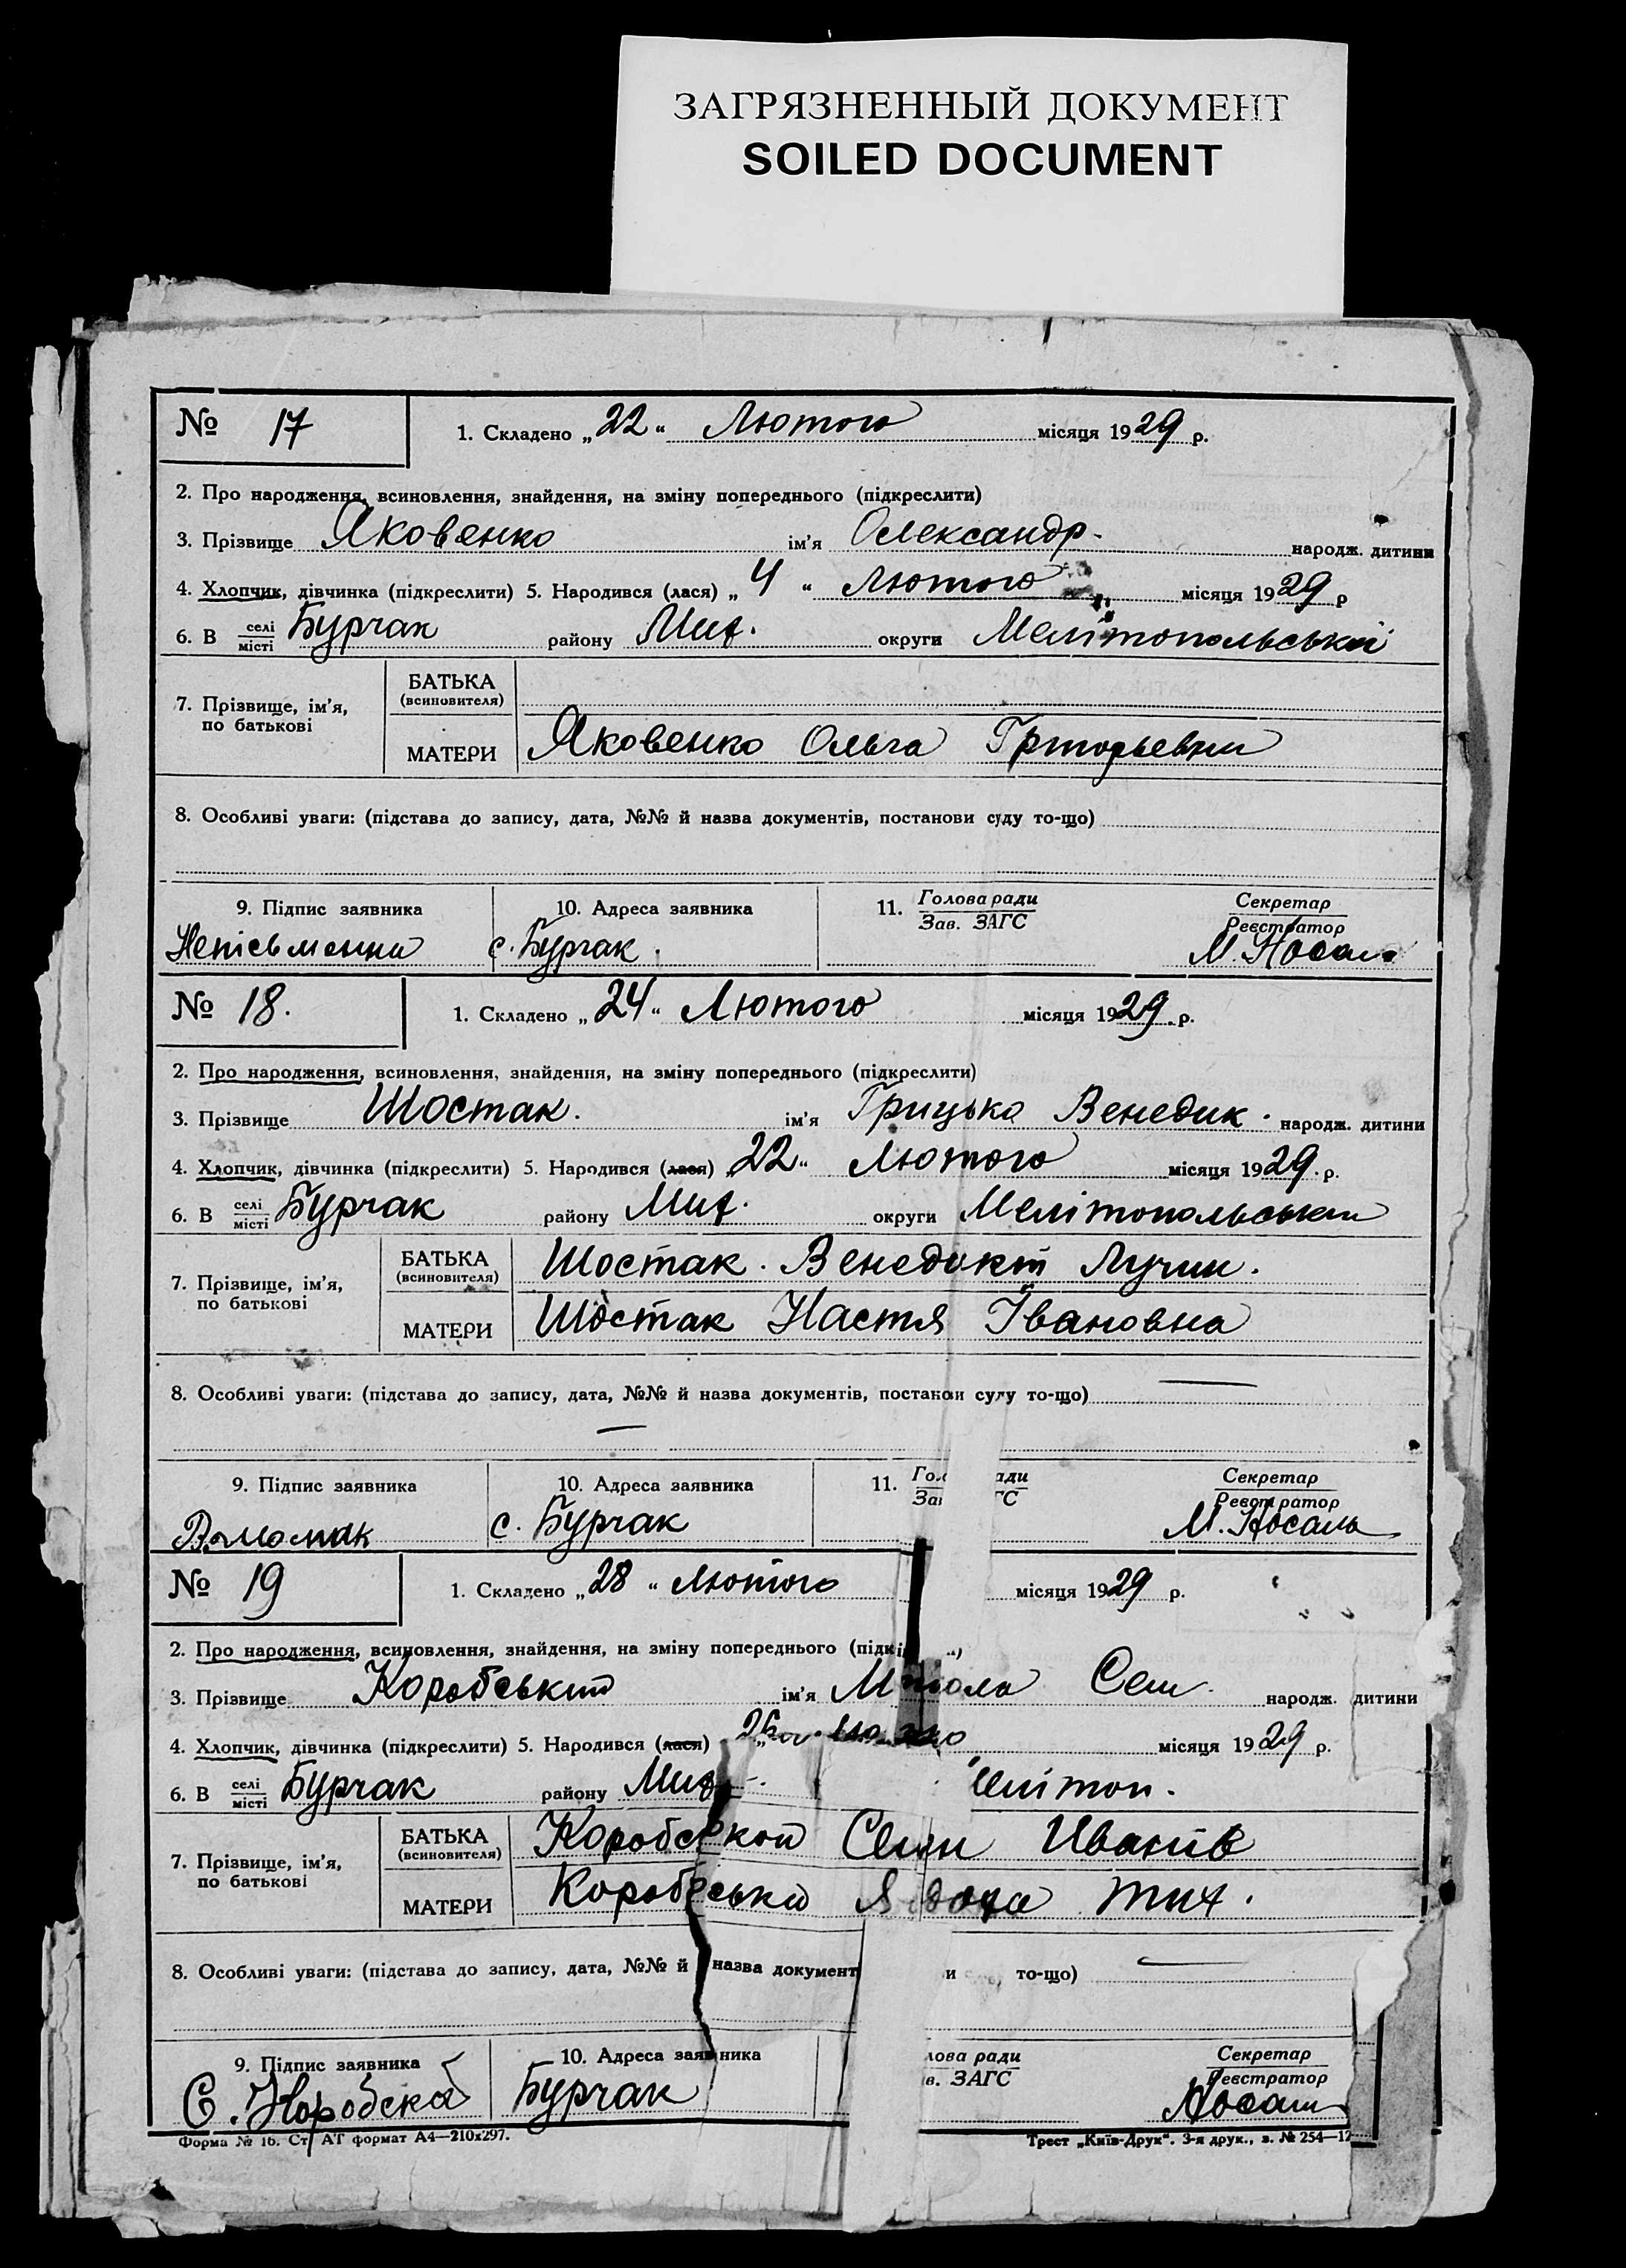 ЗАГРЯЗНЕННЫЙ ДОКУМЕНТ
SOILED DOCUMENT
№ 17
1. Складено „22“ Лютого місяця 1929 р.
2. Про народження, всиновлення, знайдення, на зміну попереднього (підкреслити)
3. Прізвище Яковенко ім'я Олександр. народж. дитини
4. Хлопчик, дівчинка (підкреслити) 5. Народився (лася) „4“ Лютого місяця 1929 р
6. В селі місті Бурчак району Мих. округи Мелітопольській
7. Прізвище, ім'я, по батькові
БАТЬКА (всиновителя)
МАТЕРИ Яковенко Ольга
8. Особливі уваги: (підстава до запису, дата, №№ й назва документів, постанови суду то-що)
9. Підпис заявника 10. Адреса заявника 11. Голова ради Зав. ЗАГС Секретар Реєстратор
Непісьменна с. Бурчак. М. Носаль
№ 18.
1. Складено „24“ Лютого місяця 1929 р.
2. Про народження, всиновлення, знайдення, на зміну попереднього (підкреслити)
3. Прізвище Шостак. ім'я Грицько Венедик. народж. дитини
4. Хлопчик, дівчинка (підкреслити) 5. Народився (лася) „22“ Лютого місяця 1929. р.
6. В селі місті Бурчак району Мих. округи Мелітопольськ
7. Прізвище, ім'я, по батькові
БАТЬКА (всиновителя) Шостак. Венедикт
МАТЕРИ Шостак Настя Івановна
8. Особливі уваги: (підстава до запису, дата, №№ й назва документів, постанови суду то-що)
9. Підпис заявника 10. Адреса заявника 11. Го ади За ГС Секретар Реєстратор
с. Бурчак М. Носаль
№ 19
1. Складено „28“ Лютого місяця 1929 р.
2. Про народження, всиновлення, знайдення, на зміну попереднього (підк
3. Прізвище Коробський ім'я Сем. народж. дитини
4. Хлопчик, дівчинка (підкреслити) 5. Народився (лася) 26 місяця 1929 р.
6. В селі місті Бурчак району Мих елітоп.
7. Прізвище, ім'я, по батькові
БАТЬКА (всиновителя) Коробской Семен Иванів
МАТЕРИ Коробська Тих.
8. Особливі уваги: (підстава до запису, дата, №№ й назва документ и то-що)
9. Підпис заявника 10. Адреса заявника лова ради в. ЗАГС Секретар Реєстратор
С. Коробской Бурчак Носаль
Форма № 16. Ст АТ формат А4—210х297.
Трест „Київ-Друк“. 3-я друк., з. № 254—12